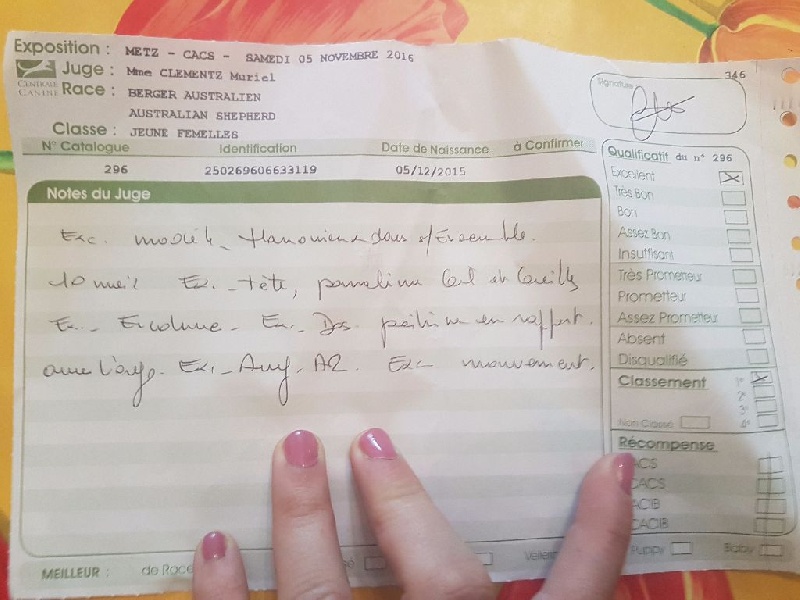 Exposition : METZ - CACS - SAMEDI 05 NOVEMBRE 2016
Juge : Mme CLEMENTZ Muriel
CENTRALE CANINE
Race : BERGER AUSTRALIEN
AUSTRALIAN SHEPHERD
Classe : JEUNE FEMELLES
346
Signature
N° Catalogue Identification Date de Naissance à Confirmer
296 250269606633119 05/12/2015
Notes du Juge
Exc. modèle. Harmonieux dans s/Ensemble.
10 mois Exc. tête, oreilles
Exc. Encolure. Exc. Dos. poitrine en rapport.
avec l'âge. Exc. Ang. AR. Exc mouvement.
Qualificatif du n° 296
Excellent
Très Bon
Bon
Assez Bon
Insuffisant
Très Prometteur
Prometteur
Assez Prometteur
Absent
Disqualifié
Classement 1°
2°
3°
Non Classé 4°
Récompense
ACS
CACS
ACIB
CACIB
MEILLEUR : de Race
Puppy Baby